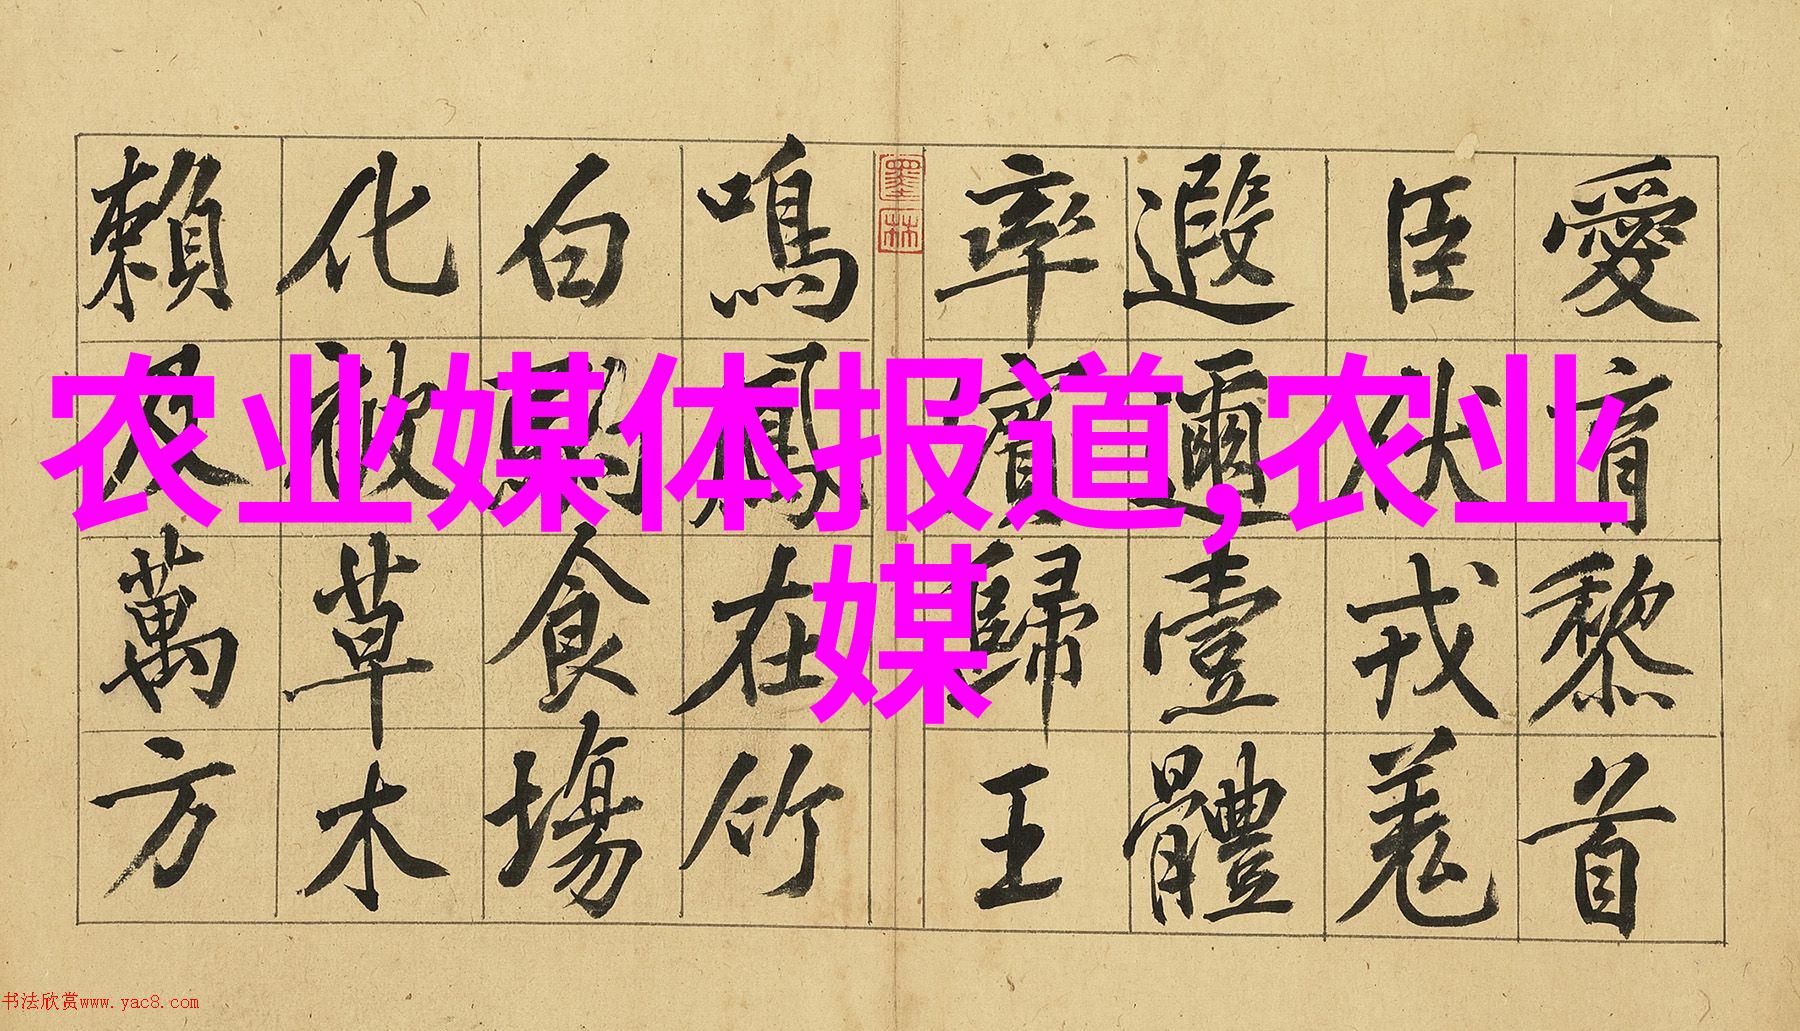 愛育黎首
臣伏戎羌
遐邇壹體
率賓歸王
墨林
鳴鳳在竹
白駒食場
化被草木
賴及萬方
农业媒体报道,农业
媒
书法欣赏www.yac8.com